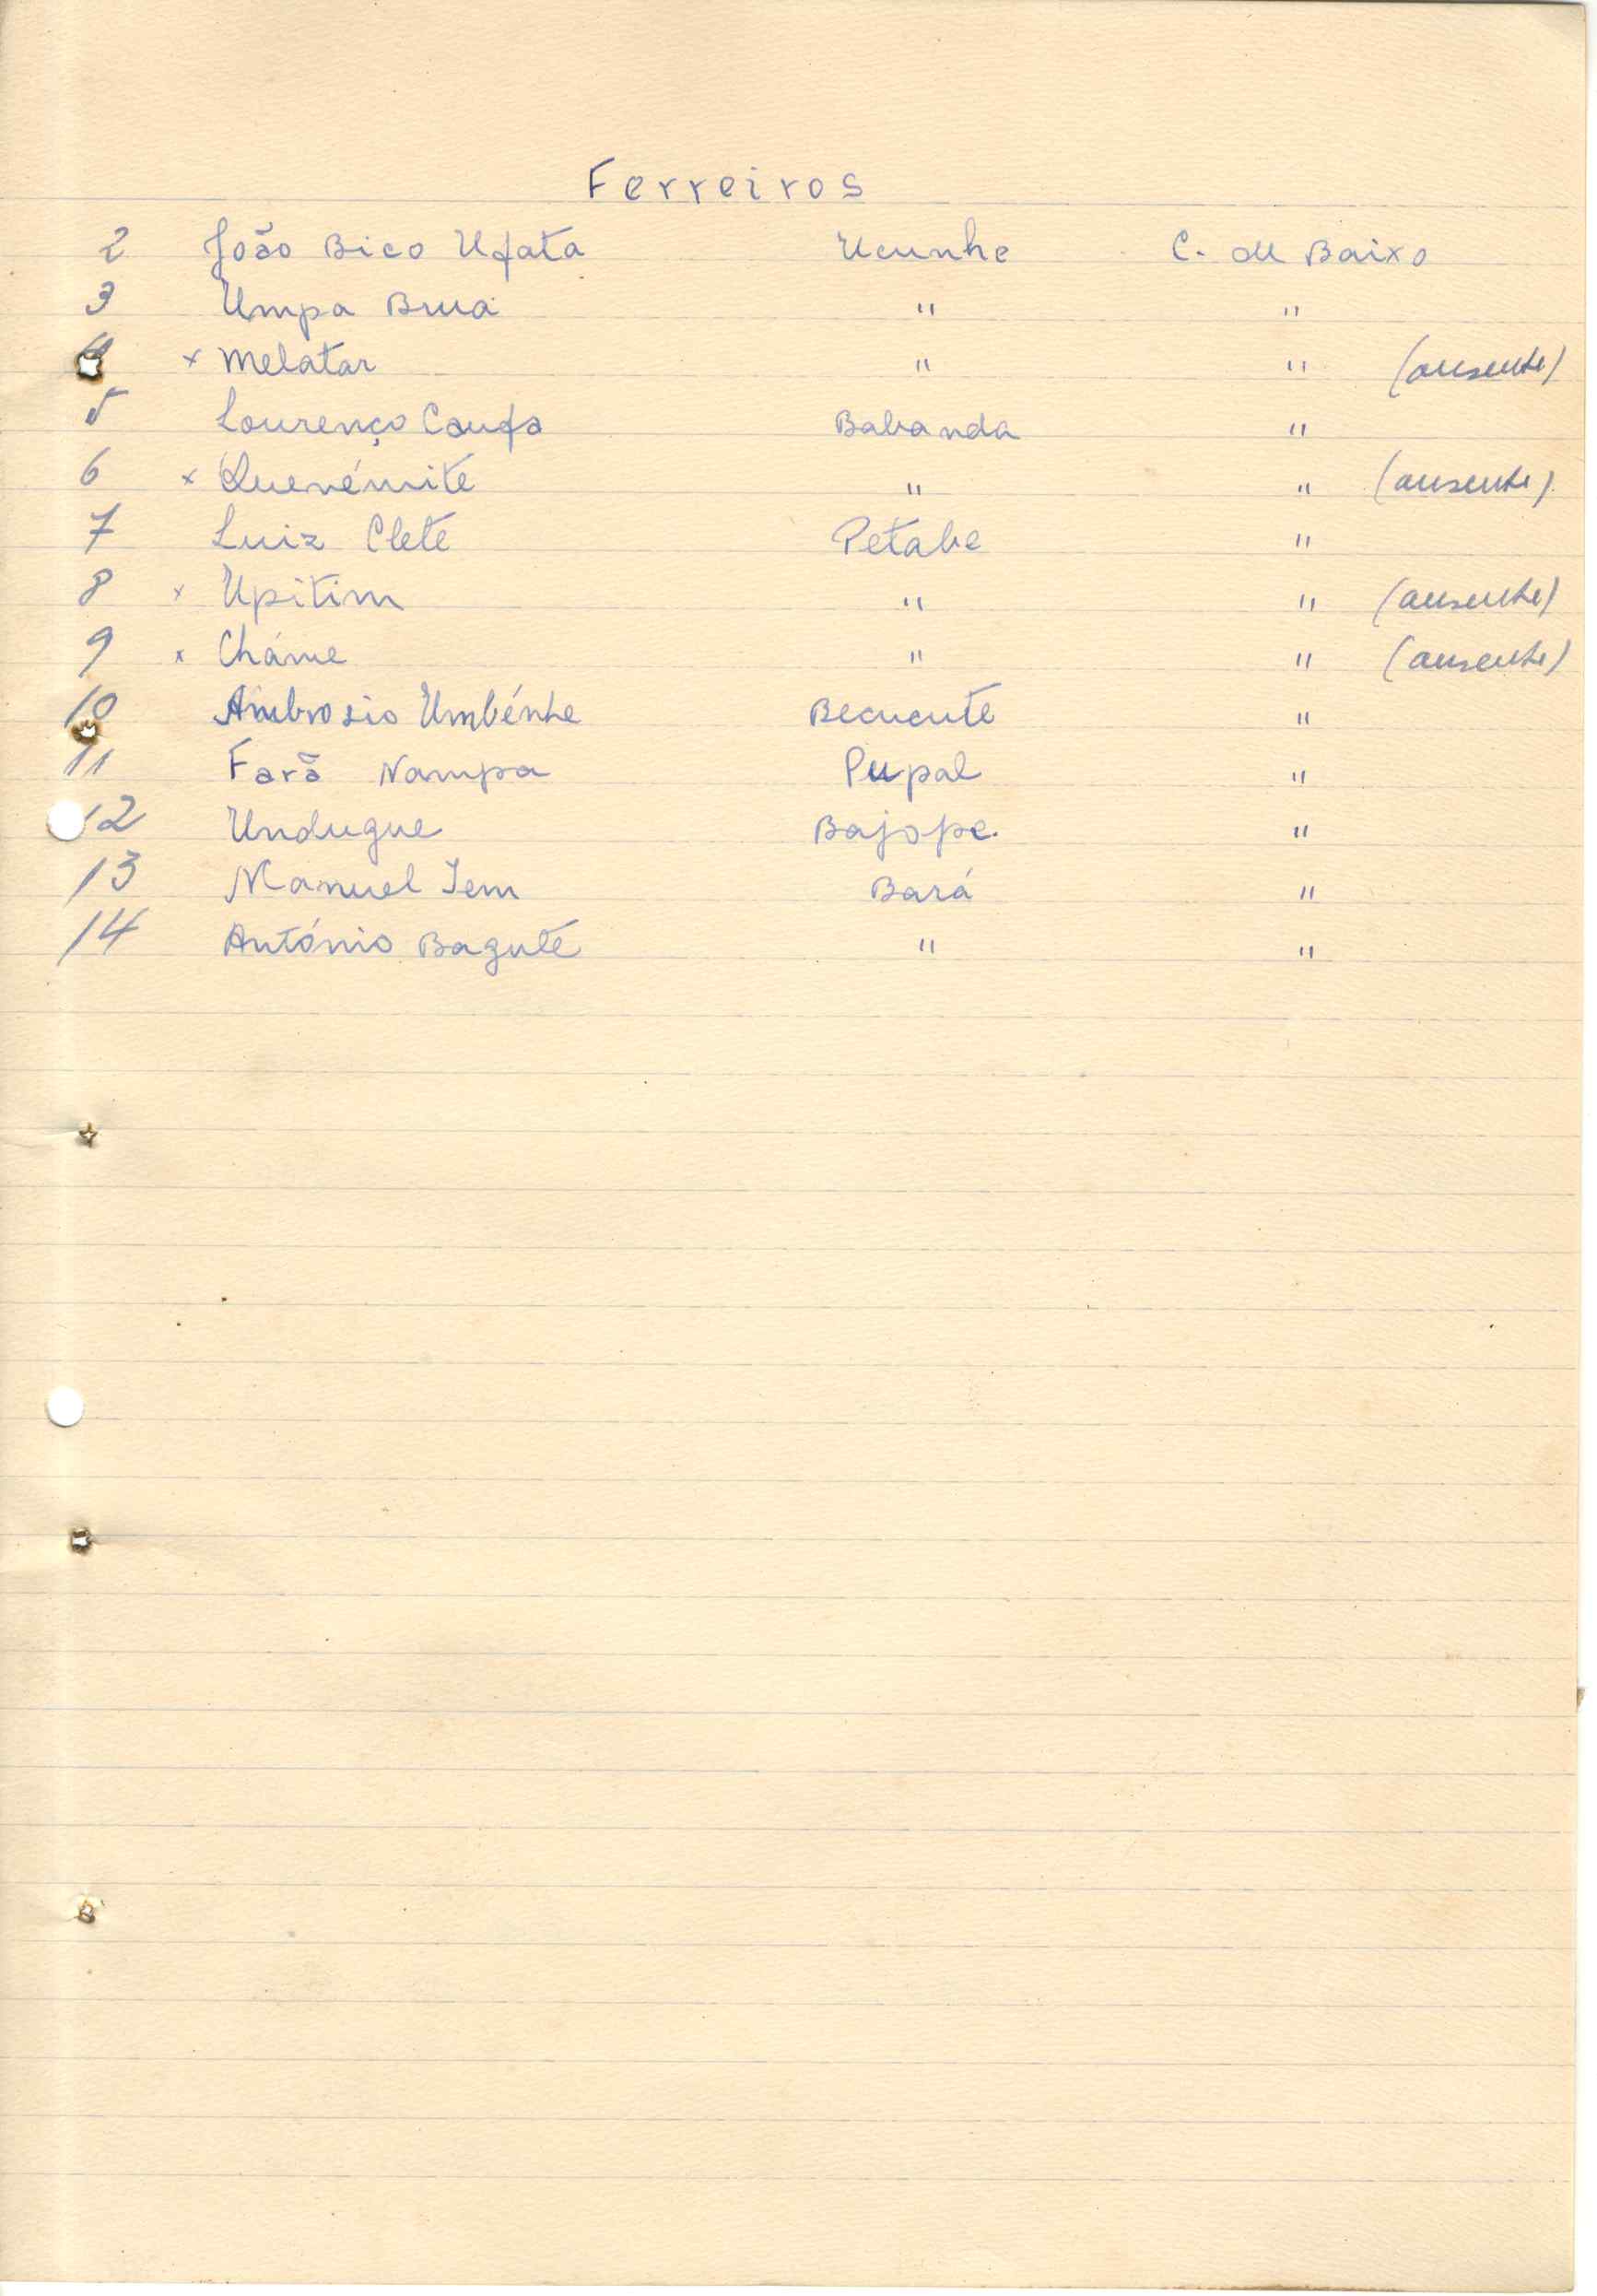 Ferreiros
2 João Bico Ufata Ucunhe C. de Baixo
3 Umpa Brua " "
4 x Melatar " " (ausente)
5 Lourenço Caufa Babanda "
6 x Quenémite " " (ausente)
7 Luiz Clete Petabe "
8 x Upitim " " (ausente)
9 x Cháme " " (ausente)
10 Ambrosio Umbénhe Becucute "
11 Farã Nampa Pupal "
12 Undugue Bajope. "
13 Manuel Iem Bará "
14 António Bagute " "